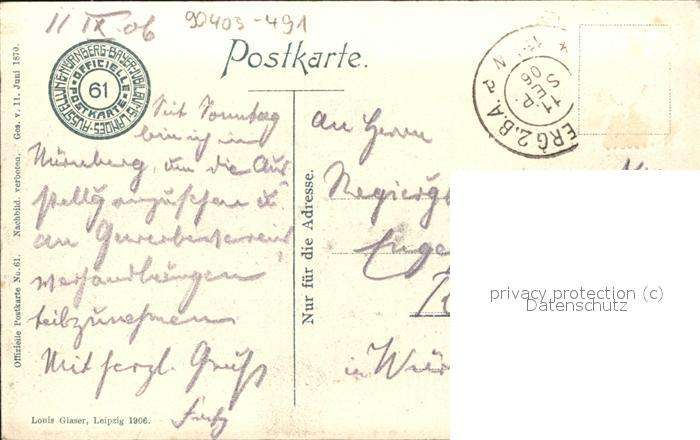 11 IX 06
90403-491
Postkarte.
AUSSTELLUNG·NÜRNBERG·BAYER·JUBILÄUMS·LANDES-
OFFICIELLE POSTKARTE
61
ERG 2.B.A.P N
Seit Sonntag
bin ich in
Nürnberg, um die Aus
stellg anzusehen u
an Gewerbeverein
verhandlungen
teilzunehmen
Mit herzl. Gruß
Fritz
an Herrn
in
Nur für die Adresse.
Officielle Postkarte No. 61. Nachbild. verboten. Ges. v. 11. Juni 1870.
Louis Glaser, Leipzig 1906.
privacy protection (c)
Datenschutz